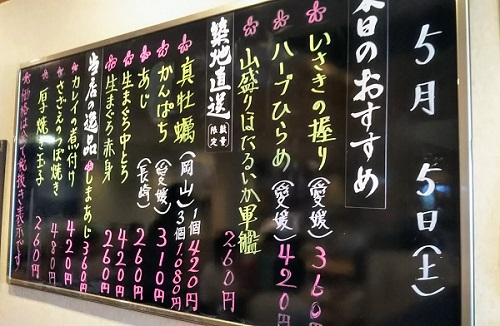 5月 5日(土)
本日のおすすめ
いさきの握り(愛媛) 360円
ハーブひらめ(愛媛) 420円
山盛りほたるいか軍艦 260円
築地直送 数量限定
真牡蠣(岡山) 1個 420円 3個 1,080円
かんぱち(愛媛) 310円
あじ(長崎) 260円
生まぐろ中とろ 420円
生まぐろ赤身 260円
当店の逸品
しまあじ 360円
カレイの煮付け 420円
さざえのつぼ焼き 480円
厚焼き玉子 260円
価格は全て税抜き表示です